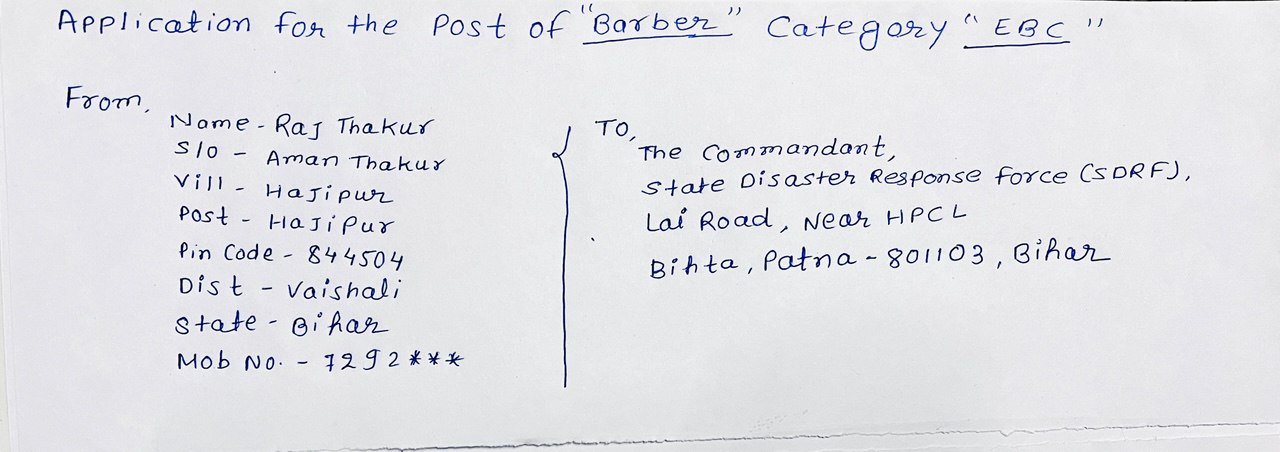 Application for the Post of "Barber" Category "EBC"
From,
Name - Raj Thakur
S/o - Aman Thakur
Vill - Hajipur
Post - Hajipur
Pin Code - 844504
Dist - Vaishali
State - Bihar
Mob No. - 7292***
To,
The Commandant,
State Disaster Response Force (SDRF),
Lai Road, Near HPCL
Bihta, Patna - 801103, Bihar